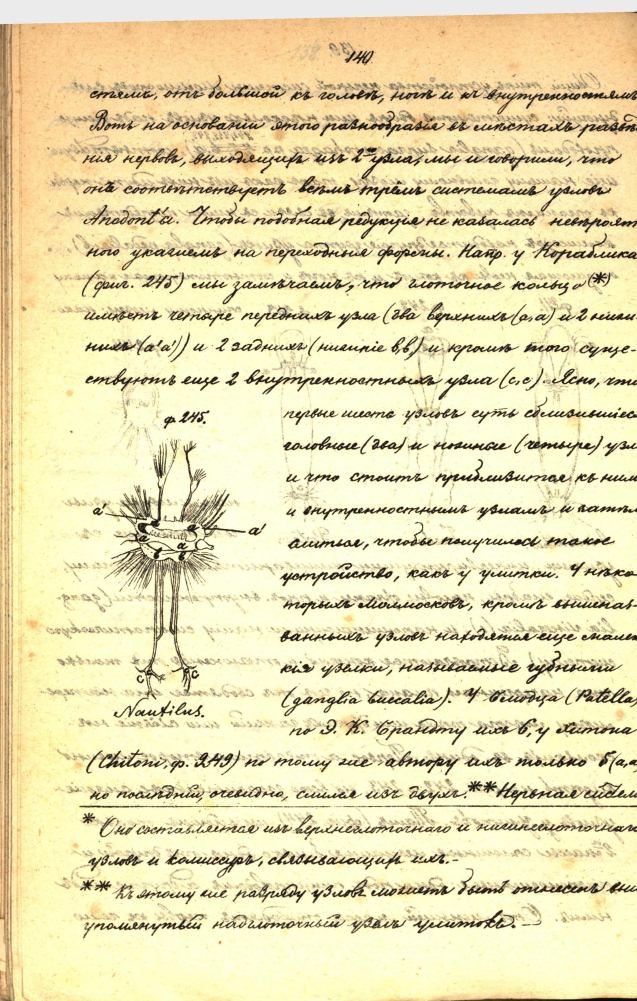 140
стямъ, отъ большой къ головѣ, ногѣ и къ внутренностямъ
Вотъ на основаніи этого разнообразія въ мѣстахъ развѣт
нія нервовъ, выходящихъ изъ 2го узла, мы и говорили, что
онъ соотвѣтствуетъ всѣмъ тремъ системамъ узловъ
Anodont'а. Чтобы подобная редукція не казалась невѣроят
ного укажемъ на переходныя формы. Напр. у Кораблика
(фиг. 245) мы замѣчаемъ, что глоточное кольцо (*)
имѣетъ четыре переднихъ узла (два верхнихъ (a,a) и 2 ниж
нихъ (a'a')) и 2 заднихъ (нижніе b,b) и кромѣ того суще-
ствуютъ еще 2 внутренностныхъ узла (c,c). Ясно, что
ф. 245.
первые шесть узловъ суть сблизившіес
головные (два) и ножные (четыре) узл
и что стоитъ приблизится къ ним
и внутренностнымъ узламъ и затѣм
слиться, чтобы получилось такое
устройство, какъ у улитки. У нѣко
торыхъ Моллюсковъ, кромѣ вышеназ-
ванныхъ узловъ находятся еще мален
кіе узелки, называемые губными
(ganglia buccalia). У блюдца (Patella)
по Э. К. Брандту ихъ 6, у Хитона
(Chiton, ф. 249) по тому же автору ихъ только 5 (a,a
но послѣдній, очевидно, слился изъ двухъ.** Нервная систем
a' a'
a a
b b
c c
Nautilus.
* Оно составляется изъ верхнеглоточнаго и нижнеглоточнаго
узловъ и комиссуръ, связывающихъ ихъ.-
** Къ этому же разряду узловъ можетъ быть отнесенъ вы
упомянутый надглоточный узелъ улитокъ.-